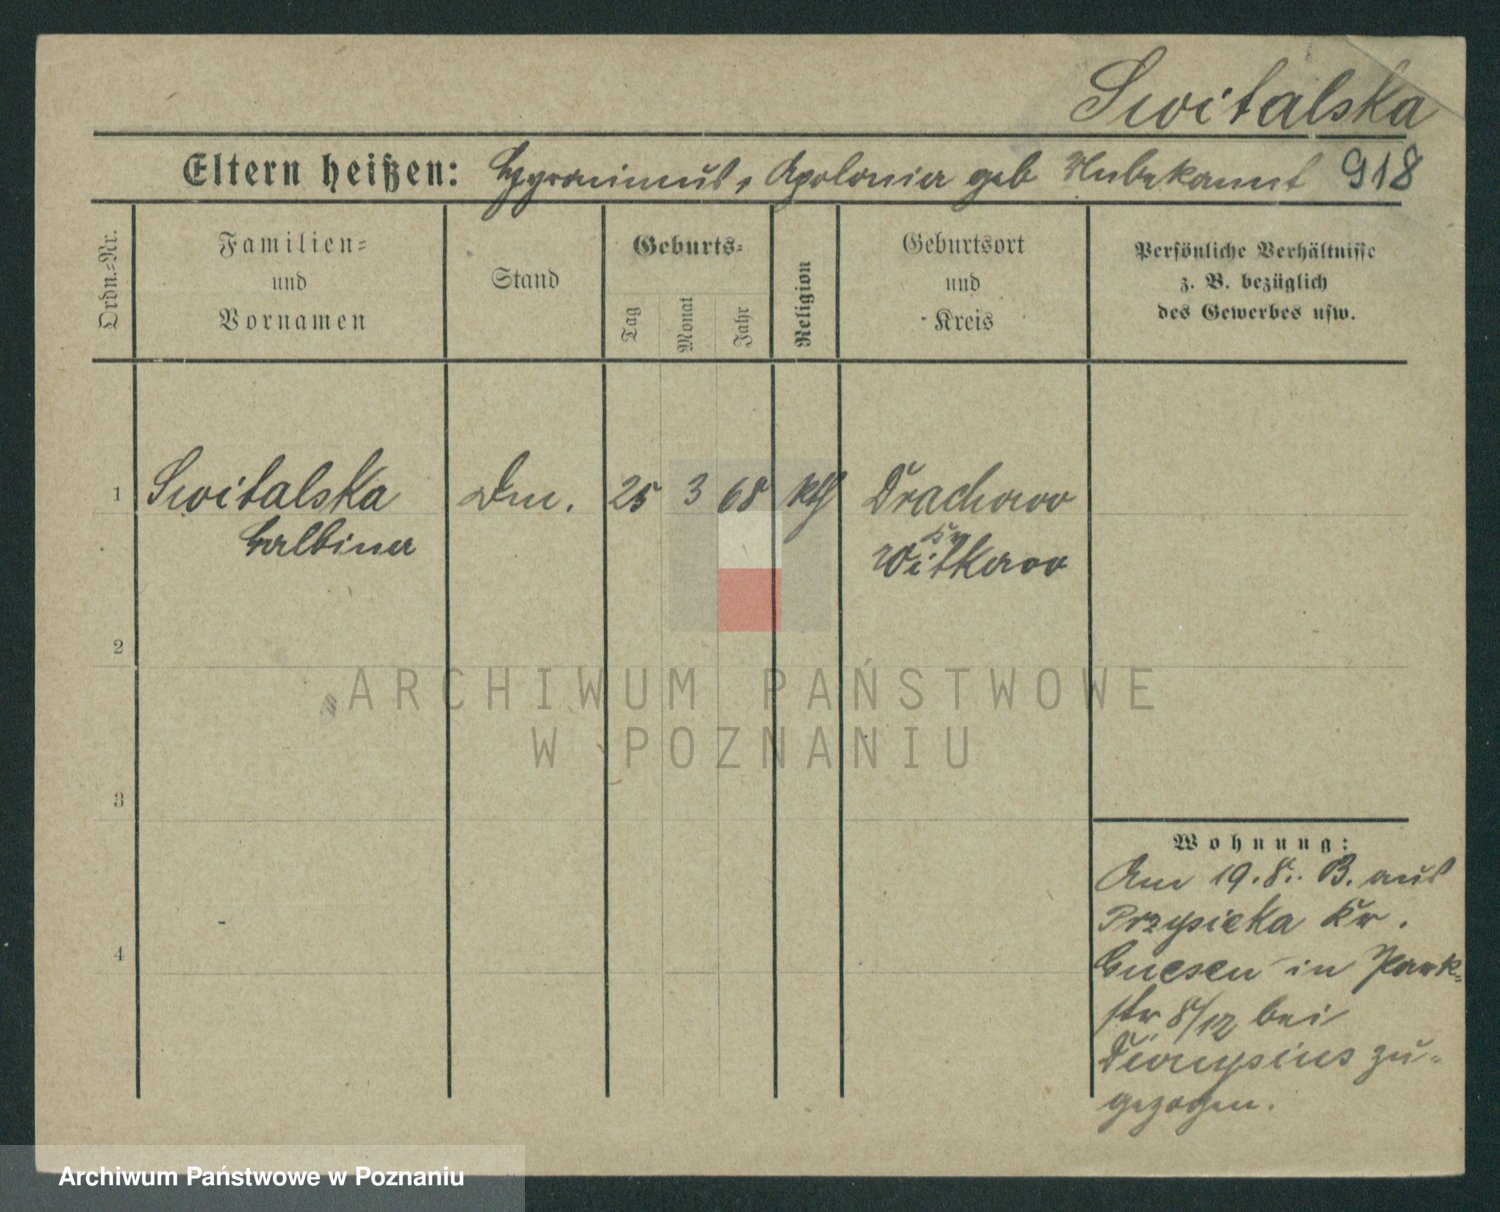 Switalska
Eltern heißen: Hyronimus, Apolonia geb Unbekannt 918
Ordn.-Nr.
Familien-
und
Vornamen
Stand
Geburts-
Tag
Monat
Jahr
Religion
Geburtsort
und
Kreis
Persönliche Verhältnisse
z. B. bezüglich
des Gewerbes usw.
1 Switalska 25 3 68 kth Drachowo
Balbina
Kr
Witkowo
2
3
4
Wohnung:
Am 19.8. B. aus
Przysieka Kr.
Gnesen in Park-
str 8/12 bei
Dionysius zu-
gezogen.
ARCHIWUM PAŃSTWOWE
W POZNANIU
Archiwum Państwowe w Poznaniu